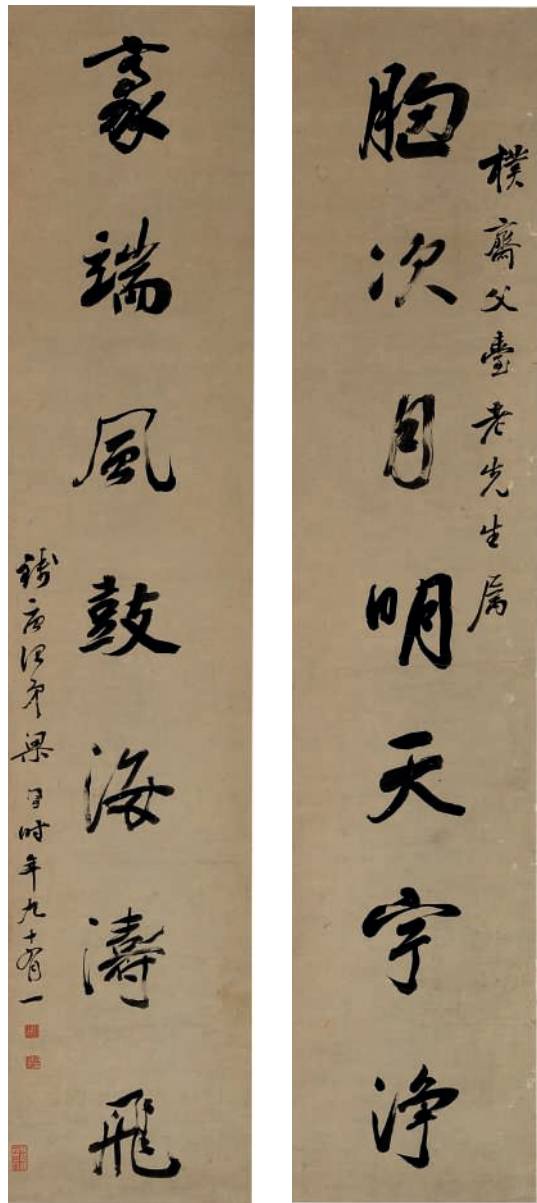 樸齋父臺老先生屬
胸次月明天宇淨
豪端風鼓海濤飛
錢唐治弟梁同書時年九十有一